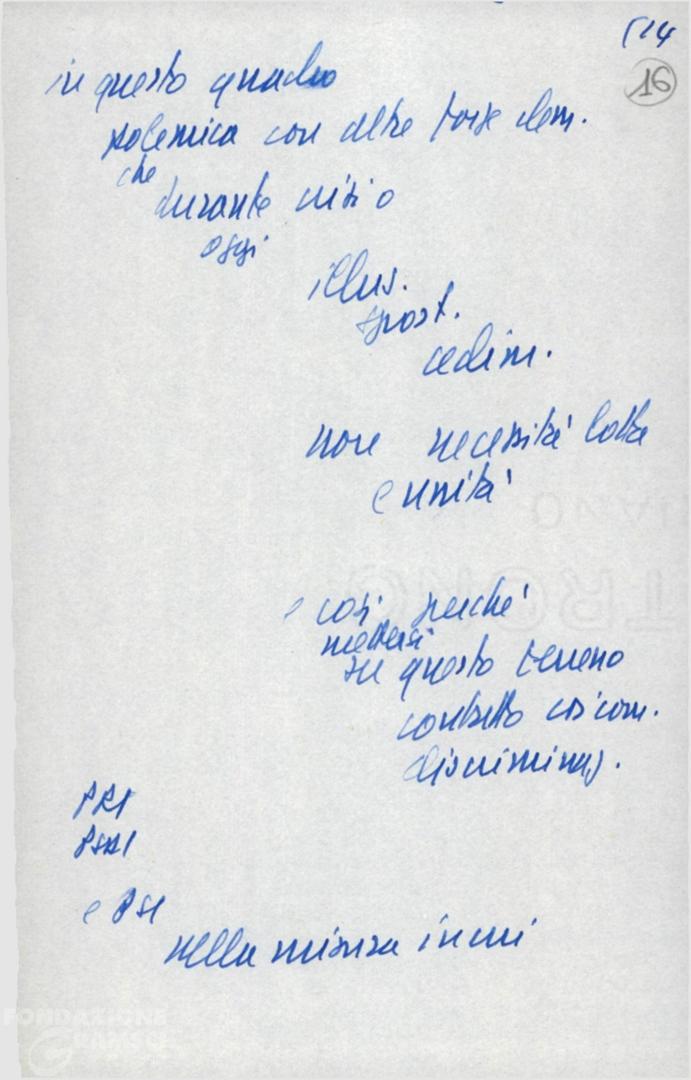 (14
16
in questo quadro
polemica con altre forze dem.
che
durante crisi o
oggi
illus.
spost.
cedim.
non necessità lotta
e unità
e così perché
mettersi
su questo terreno
contratto
discriminaz.
PRI
PSDI
e PSI
nella misura in cui
FONDAZIONE
GRAMSCI